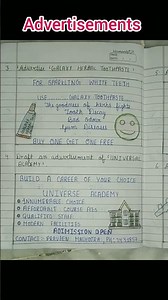 Advertisements
3. Advertise "GALAXY HERBAL TOOTHPASTE"
FOR SPARKLING WHITE TEETH
USE GALAXY TOOTHPASTE
The goodness of herbs fights
Tooth Decay
Bad odour
BUY ONE GET ONE FREE
4. Draft an advertisement of "UNIVERSE
BUILD A CAREER OF YOUR CHOICE
UNIVERSE ACADEMY
INNUMERABLE CHOICE
AFFORDABLE COURSE FEES
QUALIFIED STAFF
MODERN FACILITIES
ADMISSION OPEN
CONTACT: